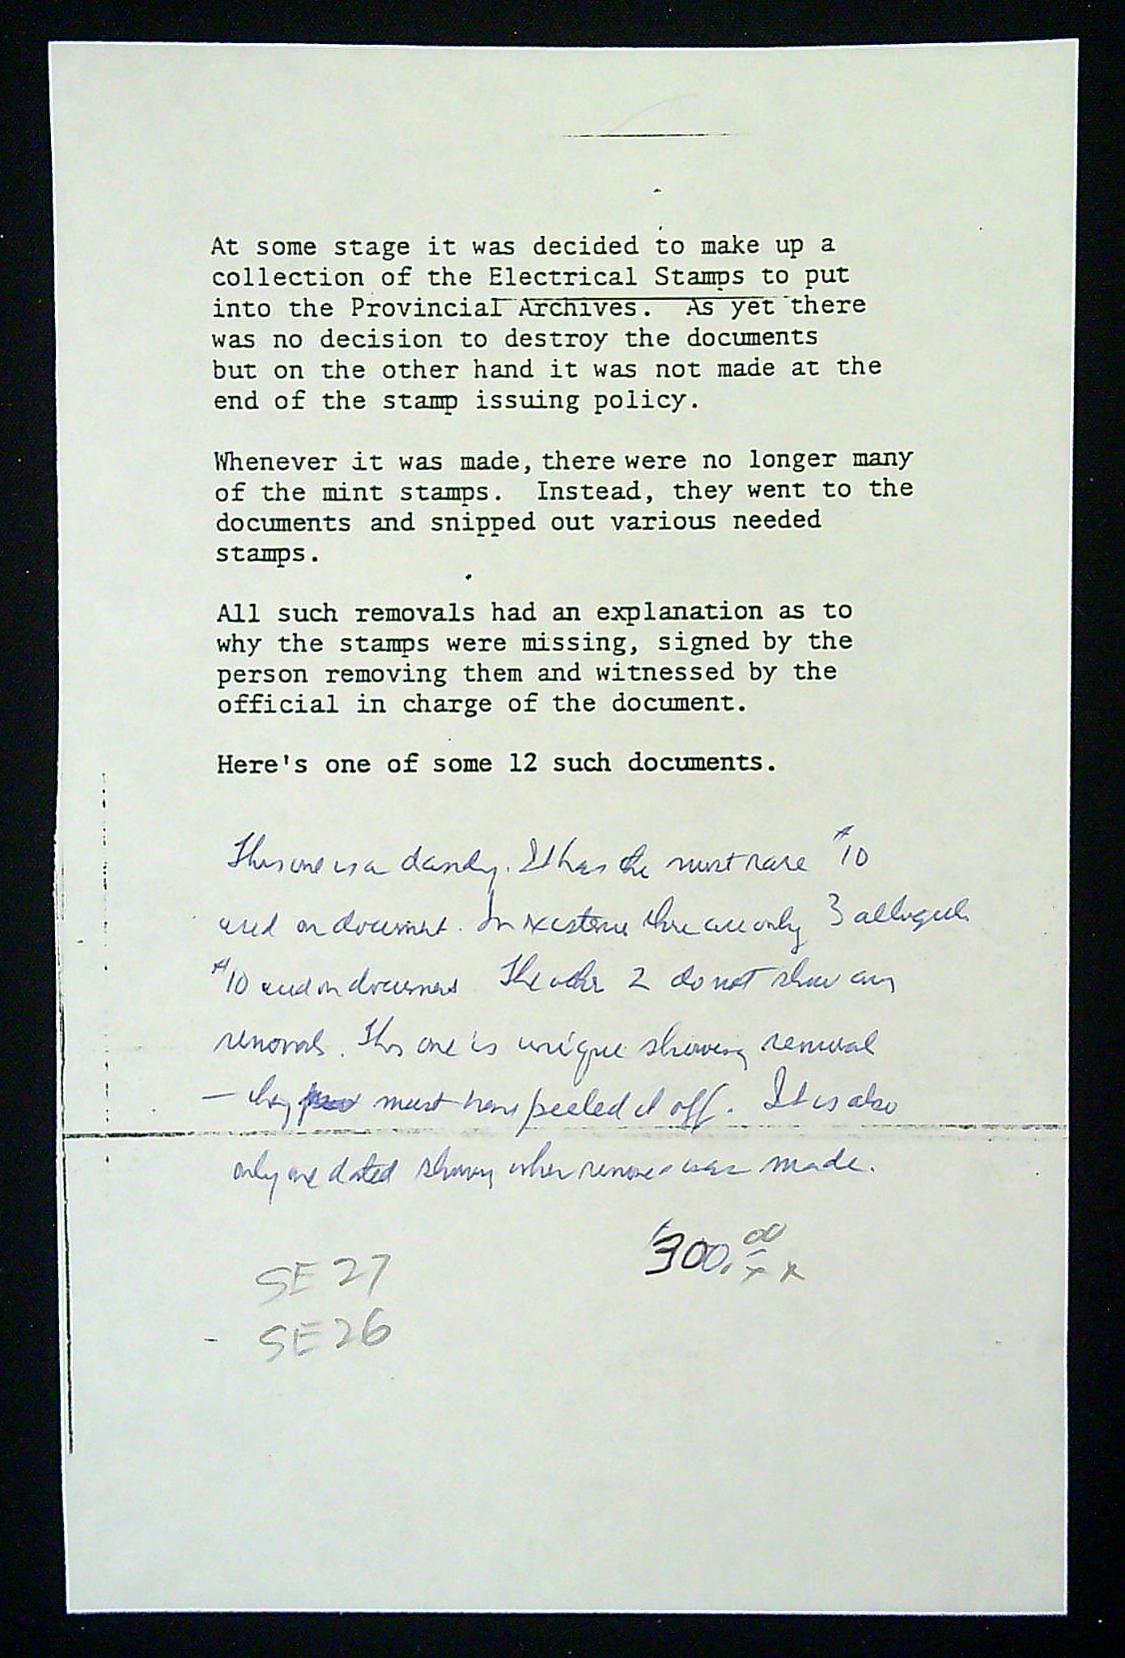 At some stage it was decided to make up a
collection of the Electrical Stamps to put
into the Provincial Archives. As yet there
was no decision to destroy the documents
but on the other hand it was not made at the
end of the stamp issuing policy.
Whenever it was made, there were no longer many
of the mint stamps. Instead, they went to the
documents and snipped out various needed
stamps.
All such removals had an explanation as to
why the stamps were missing, signed by the
person removing them and witnessed by the
official in charge of the document.
Here's one of some 12 such documents.
This one is a dandy. It has the most rare #10
used on document. In existence there are only 3 altogether
#10 used on document The other 2 do not show any
removals. This one is unique showing removal
— they must have peeled it off. It is also
only one dated showing when removal was made.
$300.00
SE 27
- SE 26